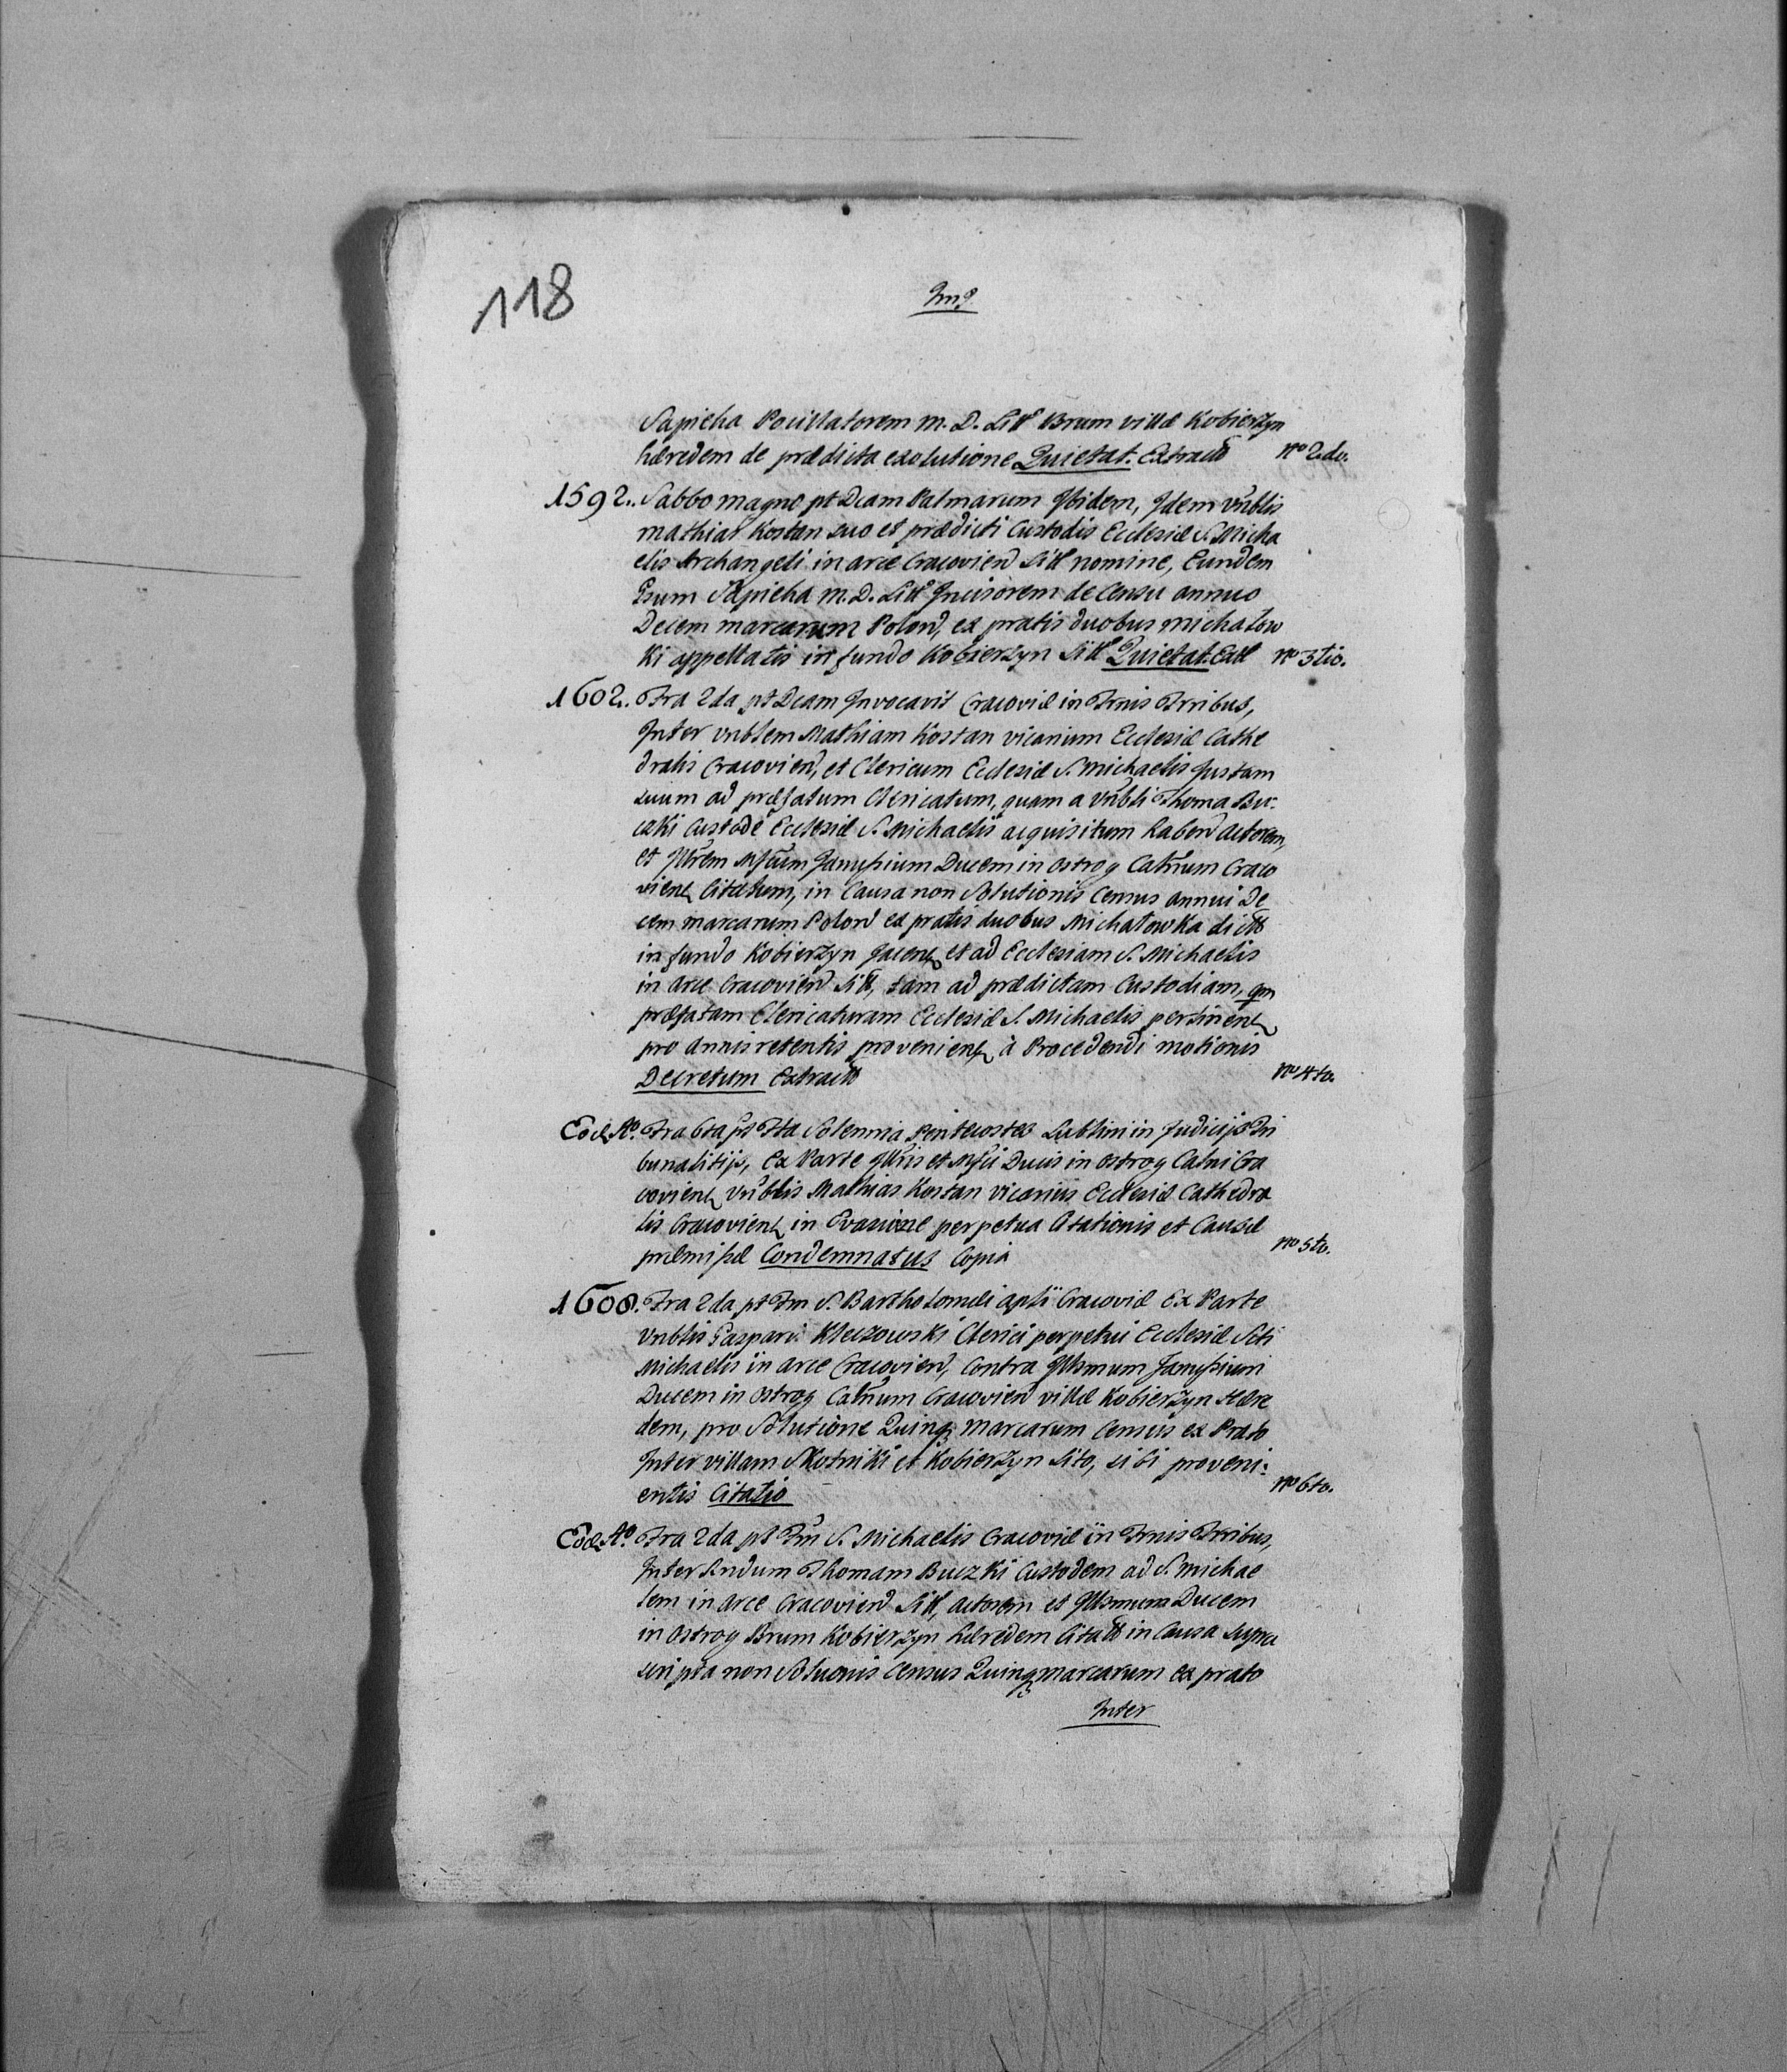 118
Sapieha Pocillatorem M. D. Litt Brum villæ Kobierzyn
hæredem de prædicta exolutione Quietat. Extractt no 2do.
1592. Sabbo magno pt Dcam Palmarum Ibidem, Idem Vnblis
Mathias Kostan suo et prædicti Custodis Ecclesiæ S. Micha
elis Archangeli in arce Cracovien Sitt nomine, Eundem
Gsum Sapieha M. D. Litt Incisorem de Censu annuo
Decem marcarum Polon, ex pratis duobus Michałow
ki appellatis in fundo Kobierzyn Sitt Quietat. Extt no 3tio.
1602. Fra 2da pt Dcam Invocavit Cracoviæ in Trnis Trribus,
Inter vnblem Mathiam Kostan vicarium Ecclesiæ Cathe
dralis Cracovien, et Clericum Ecclesiæ S. Michaelis Iustam
suum ad præfatum Clericatum, quam a Vnbli Thoma Bu:
czki Custode Ecclesiæ S. Michaelis acquisitum haben actorem,
et Illrem Mfcum Janussium Ducem in Ostrog Catnum Craco
vien Citatum, in Causa non Solutionis Census annui De
cem marcarum Polon ex pratis duobus Michałowka dictt
in fundo Kobierzyn Jacen et ad Ecclesiam S. Michaelis
in arce Cracovien Sitt, tam ad prædictam Custodiam, qm
præfatam Clericaturam Ecclesiæ S. Michaelis pertinen
pro Annis retentis provenien à Procedendi motionis
Decretum Extractt no 4to.
Eod Ao. Fra 6ta pt Fta Solennia Pentecostes Lublini in Judicijs Tri
bunalitijs, Ex Parte Illris et Mfci Ducis in Ostrog Catni Cra
covien Vnblis Mathias Kostan vicarius Ecclesiæ Cathedra
lis Cracovien in Evasione perpetua Citationis et Causæ
præmissæ Condemnatus Copia no 5to.
1608. Fra 2da pt Fm S. Bartholomæi Apli Cracoviæ Ex Parte
Vnblis Gaspari Kleczowski Clerici perpetui Ecclesiæ Scti
Michaelis in arce Cracovien, Contra Illsmum Janussium
Ducem in Ostrog Catnum Cracovien villæ Kobierzyn Hære
dem, pro Solutione Quinq marcarum Census ex Prato
Inter villam Skotniki et Kobierzyn Sito, sibi proveni:
entis Citatio no 6to.
Eod Ao. Fra 2da pt Fm S. Michaelis Cracoviæ in Trnis Trribus,
Inter Rndum Thomam Buczki Custodem ad S. Michae
lem in Arce Cracovien Sitt, actorem et Illsmum Ducem
in Ostrog Brum Kobierzyn hæredem Citatt in Causa supra
scripta non Solutionis Census Quinq marcarum ex prato
Inter